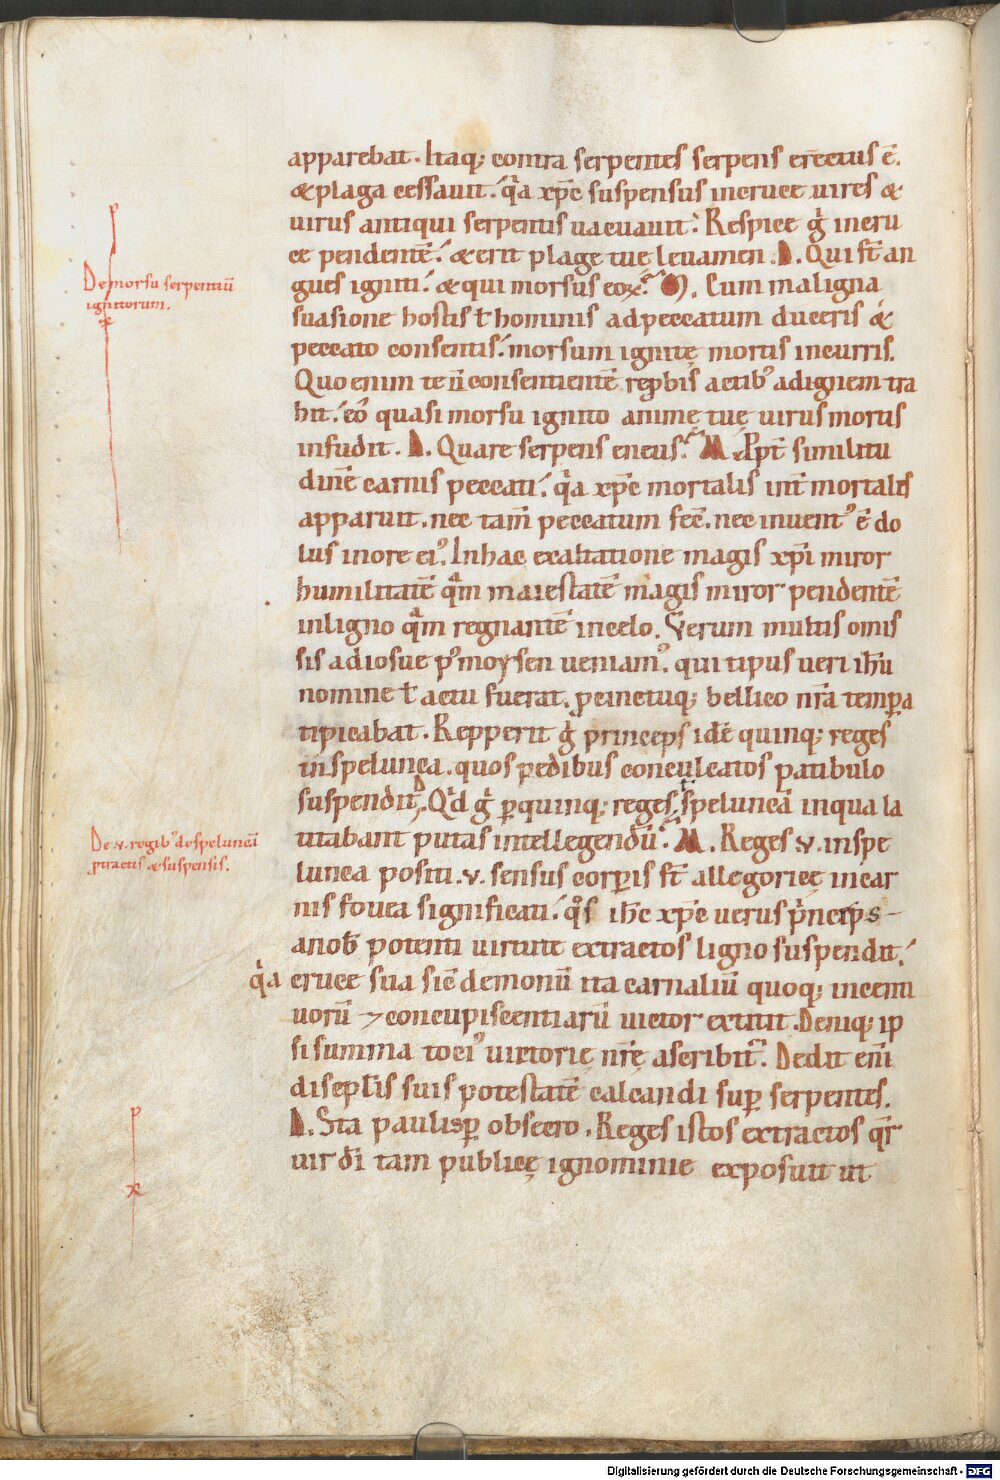 apparebat. Itaq; contra serpentes serpens erectus ē.
& plaga cessauit. q̇a xp̄c suspensus in cruce uires &
uirus antiqui serpentis uacuauit. Respice ġ in cru
ce pendentē. & erit plage tue leuamen. D. Qui st̄ an
gues igniti. & qui morsus eoꝝ. M. Cum maligna
suasione hostis ł hominis ad peccatum duceris &
peccato consentis. morsum ignitę mortis incurris.
Quo enim te n̄ consentientē rep̱bis actib; ad ignem tra
hit. eo quasi morsu ignito animę tuę uirus mortis
infudit. D. Quare serpens eneus. M. Ppt̄ similitu
dinē carnis peccati. q̇a xp̄c mortalis int̄ mortales
apparuit. nec tam̄ peccatum fec̄. nec inuent᾽ ē do
lus in ore ei᾽. In hac exaltatione magis xp̄i miror
humilitatē q̄m maiestatē magis miror pendentē
in ligno q̄m regnantē in celo. Verum multis omis
sis ad iosue p᾽ moysen ueniam᾽. qui tipus ueri ih̄u
nomine ł actu fuerat. p̱cinctuq; bellico nr̄a tempa̱
tipicabat. Repperit ġ princeps idē quinq; reges
in spelunca. quos pedibus conculcatos patibulo
suspendit. D Qd̄ ġ p̱ quinq; reges. speluncā in qua la
titabant putas intellegendū. M. Reges v. in spe
lunca positi. v. sensus corpo̱is st̄ allegoricę in car
nis fouea significati. q̊s ih̄c xp̄c uerus ṗnceps
a nob̄ potenti uirtute extractos ligno suspendit.
q̇a cruce sua sic̄ demonū ita carnaliū quoq; incenti
uorū ⁊ concupiscentiarū uictor extitit. Deniq; ip
si summa toci᾽ uictorię nr̄ę ascribit᾽. Dedit eni̅
discipl̄is suis potestatē calcandi sup̱ serpentes.
D. Sta paulisp̱ obsecro. Reges istos extractos q̄r
uir dī tam publicę ignominie exposuit ut
De morsu serpentiū
ignitorum.
De .v. regib᾽ de speluncā
p̱tractis & suspensis.
Digitalisierung gefördert durch die Deutsche Forschungsgemeinschaft - DFG